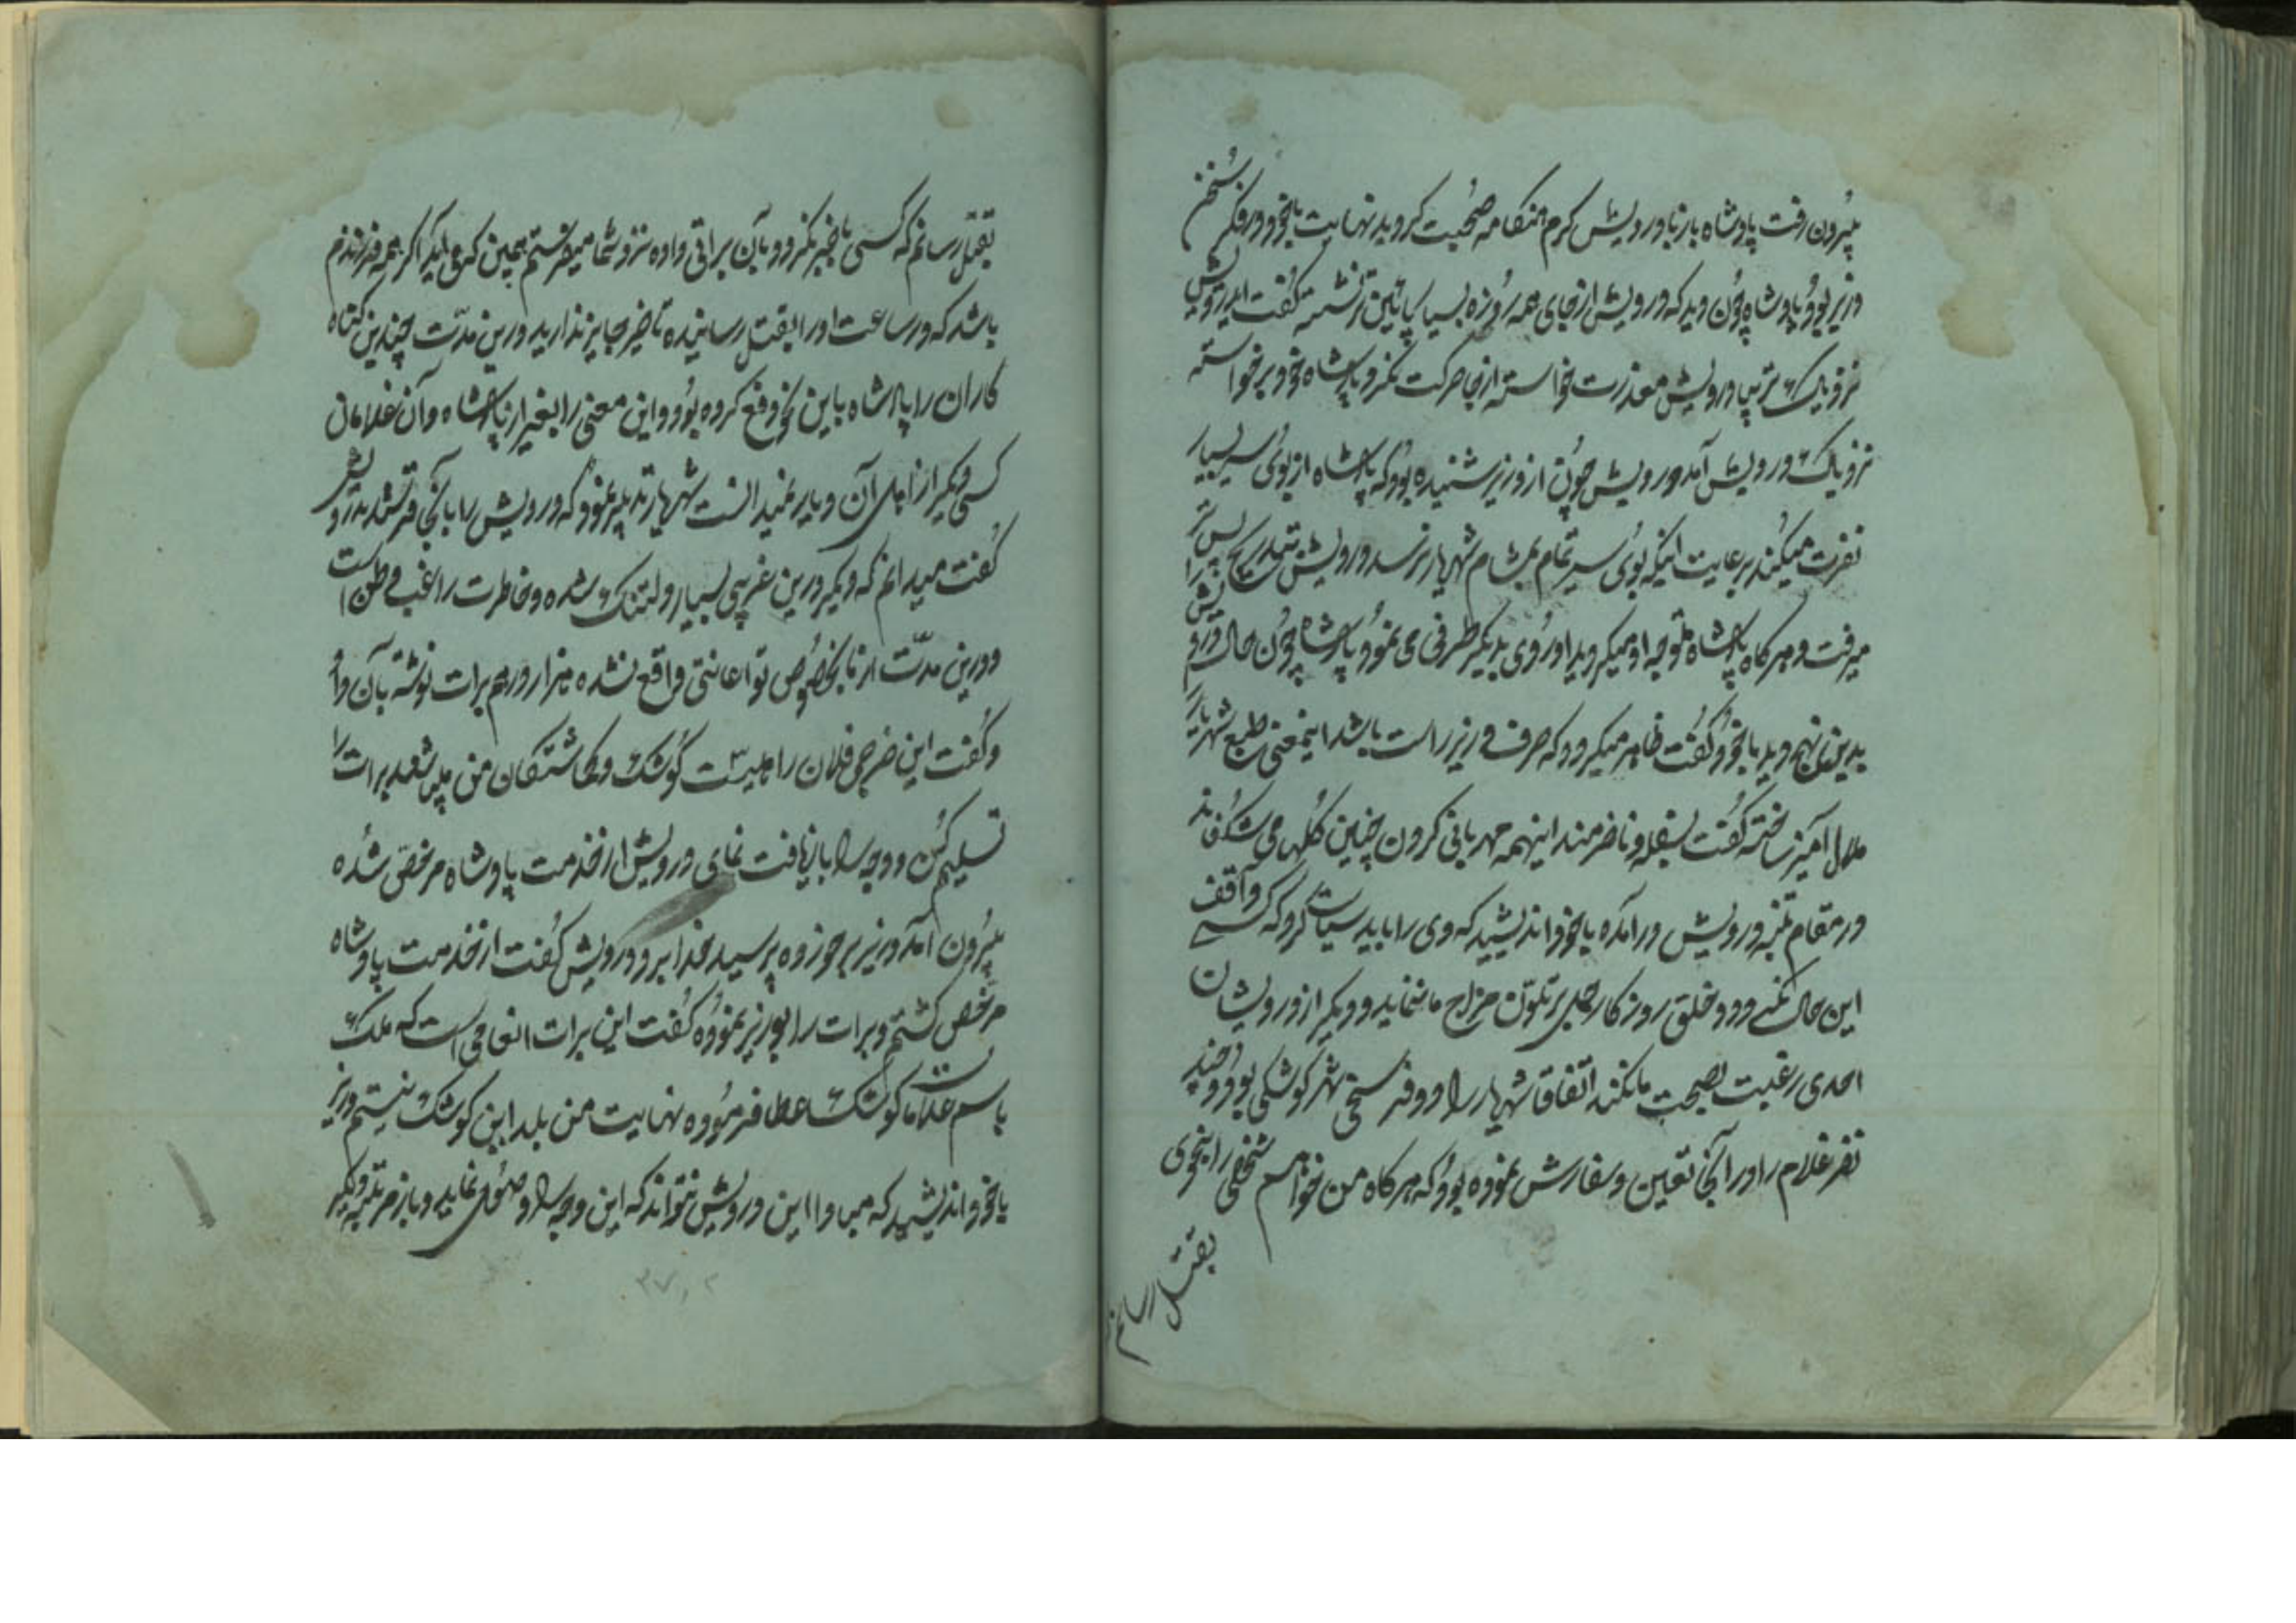 بیرون رفت پادشاه باز با درویش گرم هنگامه صحبت گردید نهایت باخود در فکر سخن
وزیر بود پادشاه چون دید که درویش از جای همه روزه بسیار پائین تر نشسته گفت ای درویش
نزدیک تر بیا درویش معذرت خواسته از جا حرکت نکرد پادشاه خود برخواسته
نزدیک درویش آمد درویش چون از وزیر شنیده بود که پادشاه از بوی سیر بسیار
نفرت میکند برعایت اینکه بوی سیر تمام بمشام شهریار نرسد درویش بتدریج پس تر
میرفت و هرگاه پادشاه متوجه او میگردید او روی بدیگر طرفی می نمود پادشاه چون حال درویش را
بدین نهج دید باخود گفت ظاهر میگردد که حرف وزیر راست باشد اینمعنی طبع شهریار را
ملال آمیز ساخته گفت بسفله و ناخرمند اینهمه مهربانی کردن چنین گلها می شکفاند
در مقام تنبه درویش درآمده باخود اندیشید که وی را باید سیاست کرد که کسی واقف
این حال نگردد و خلق روزگار حمل بر تلون مزاج ما ننماید و دیگر از درویشان
احدی رغبت بصحبت ما نکند اتفاقا شهریار را در دو فرسخی شهر کوشکی بود و چند
نفر غلام را در آنجا تعیین و سفارش نموده بود که هرگاه من خواهم شخصی را بنحوی
بقتل رسانم
بقتل رسانم که کسی با خبر نگردد بآن براتی داده نزد شما میفرستم بمجرد اگر همه فرزندم
باشد که در ساعت او را بقتل رسانیده تاخیر جایز ندارید درین مدت چندین گناه
کاران را پادشاه باین نحو دفع کرده بود و این معنی را بغیر از پادشاه و آن غلامان
کسی دیگر از اهل آن دیار نمیدانست شهریار تدبیر نمود که درویش را بآنجا فرستد بدرویش
گفت میدانم که دیگر درین غریبی بسیار دلتنگ شده و خاطرت راغب وطن است
و درین مدت از ما بخصوص تو اعانتی واقع نشده هزار درهم برات نوشته بآن داد
و گفت این خرجی فلان راهیست کوشک و گماشتگان من میباشند برات را
تسلیم کن و وجه را بازیافت نمای درویش از خدمت پادشاه مرخص شده
بیرون آمد وزیر برخورده پرسید درویش گفت از خدمت پادشاه
مرخص گشتم و برات را بوزیر نموده گفت این برات انعامی است که ملک
باسم غلامان کوشک عطا فرموده نهایت من بلد این کوشک نیستم وزیر
باخود اندیشید که مبادا این درویش نتواند که این وجه را وصول نماید و باز مرتبه دیگر